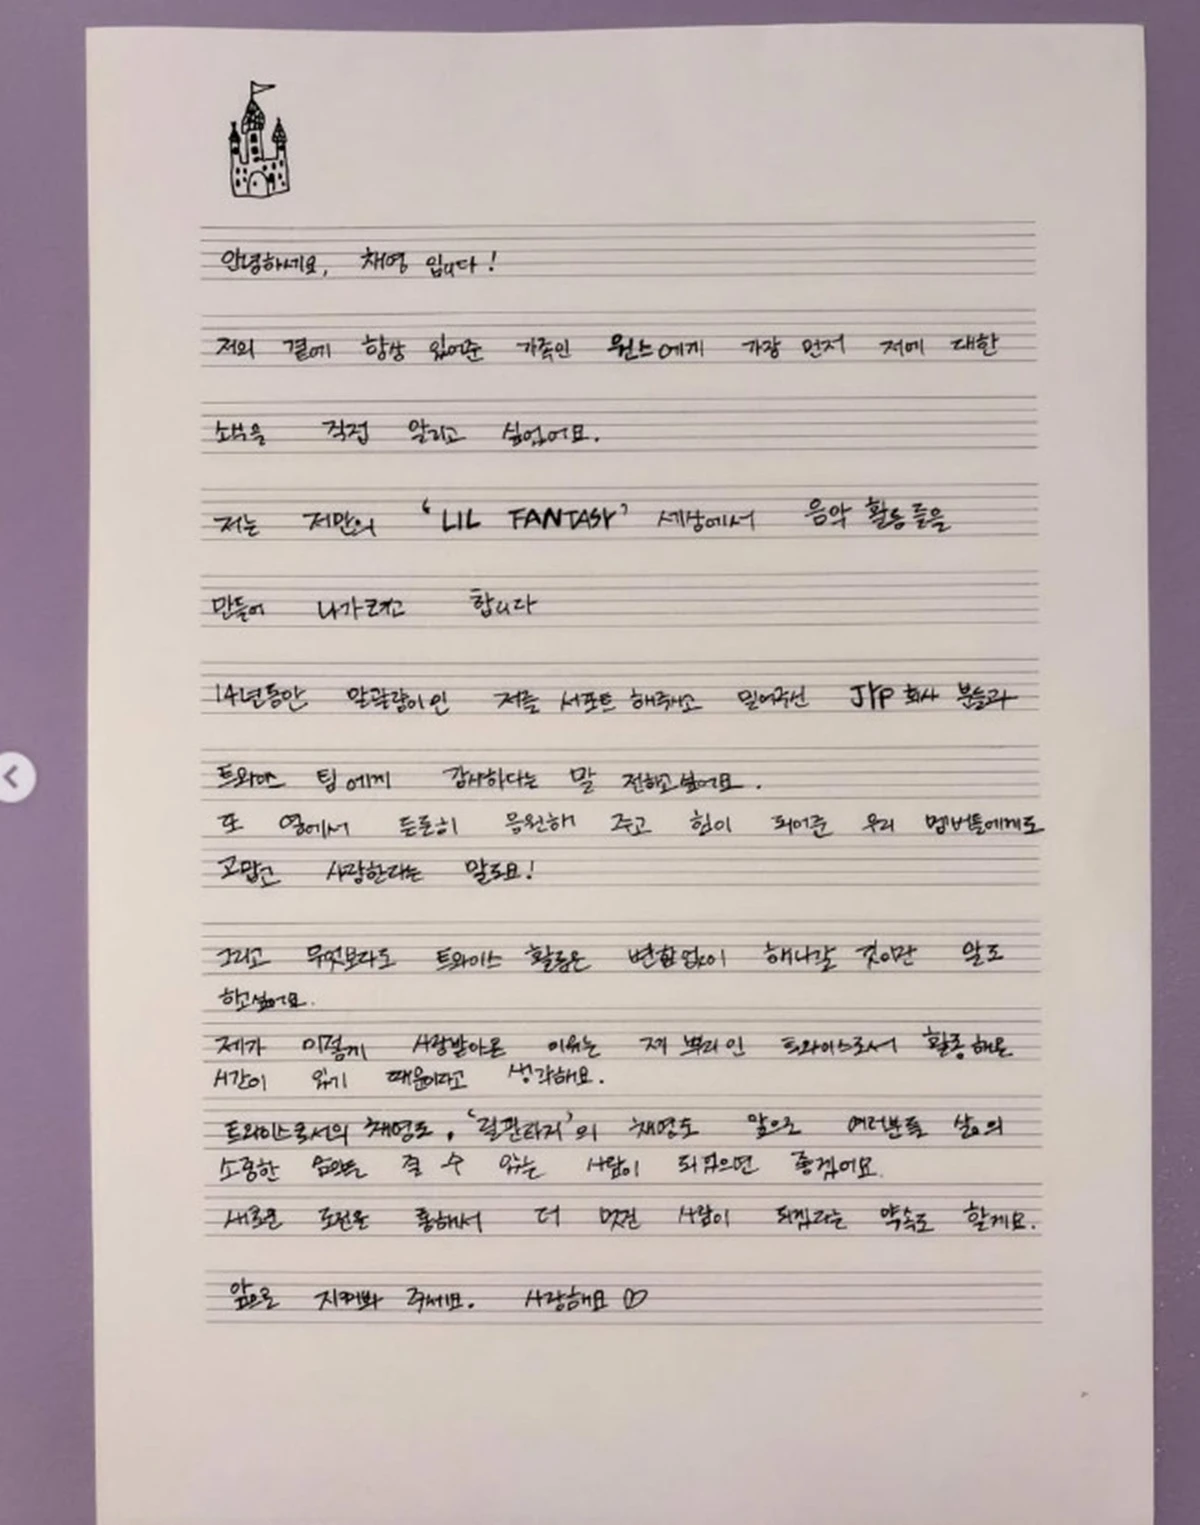 안녕하세요, 채영 입니다!
저의 곁에 항상 있어준 가족인 원스에게 가장 먼저 저에 대한
소식을 직접 알리고 싶었어요.
저는 저만의 'LIL FANTASY' 세상에서 음악 활동들을
만들어 나가려고 합니다
14년동안 말괄량이인 저를 서포트 해주시고 믿어주신 JYP 회사 분들과
트와이스 팀에게 감사하다는 말 전하고싶어요.
또 옆에서 든든히 응원해 주고 힘이 되어준 우리 멤버들에게도
고맙고 사랑한다는 말도요!
그리고 무엇보다도 트와이스 활동은 변함없이 해나갈 것이란 말도
하고싶어요.
제가 이렇게 사랑받아온 이유는 제 뿌리인 트와이스로서 활동해온
시간이 있기 때문이라고 생각해요.
트와이스로서의 채영도, '릴판타지'의 채영도 앞으로 여러분들 삶의
소중한 음악을 줄 수 있는 사람이 되었으면 좋겠어요.
새로운 도전을 통해서 더 멋진 사람이 되겠다는 약속도 할게요.
앞으로 지켜봐 주세요. 사랑해요♡